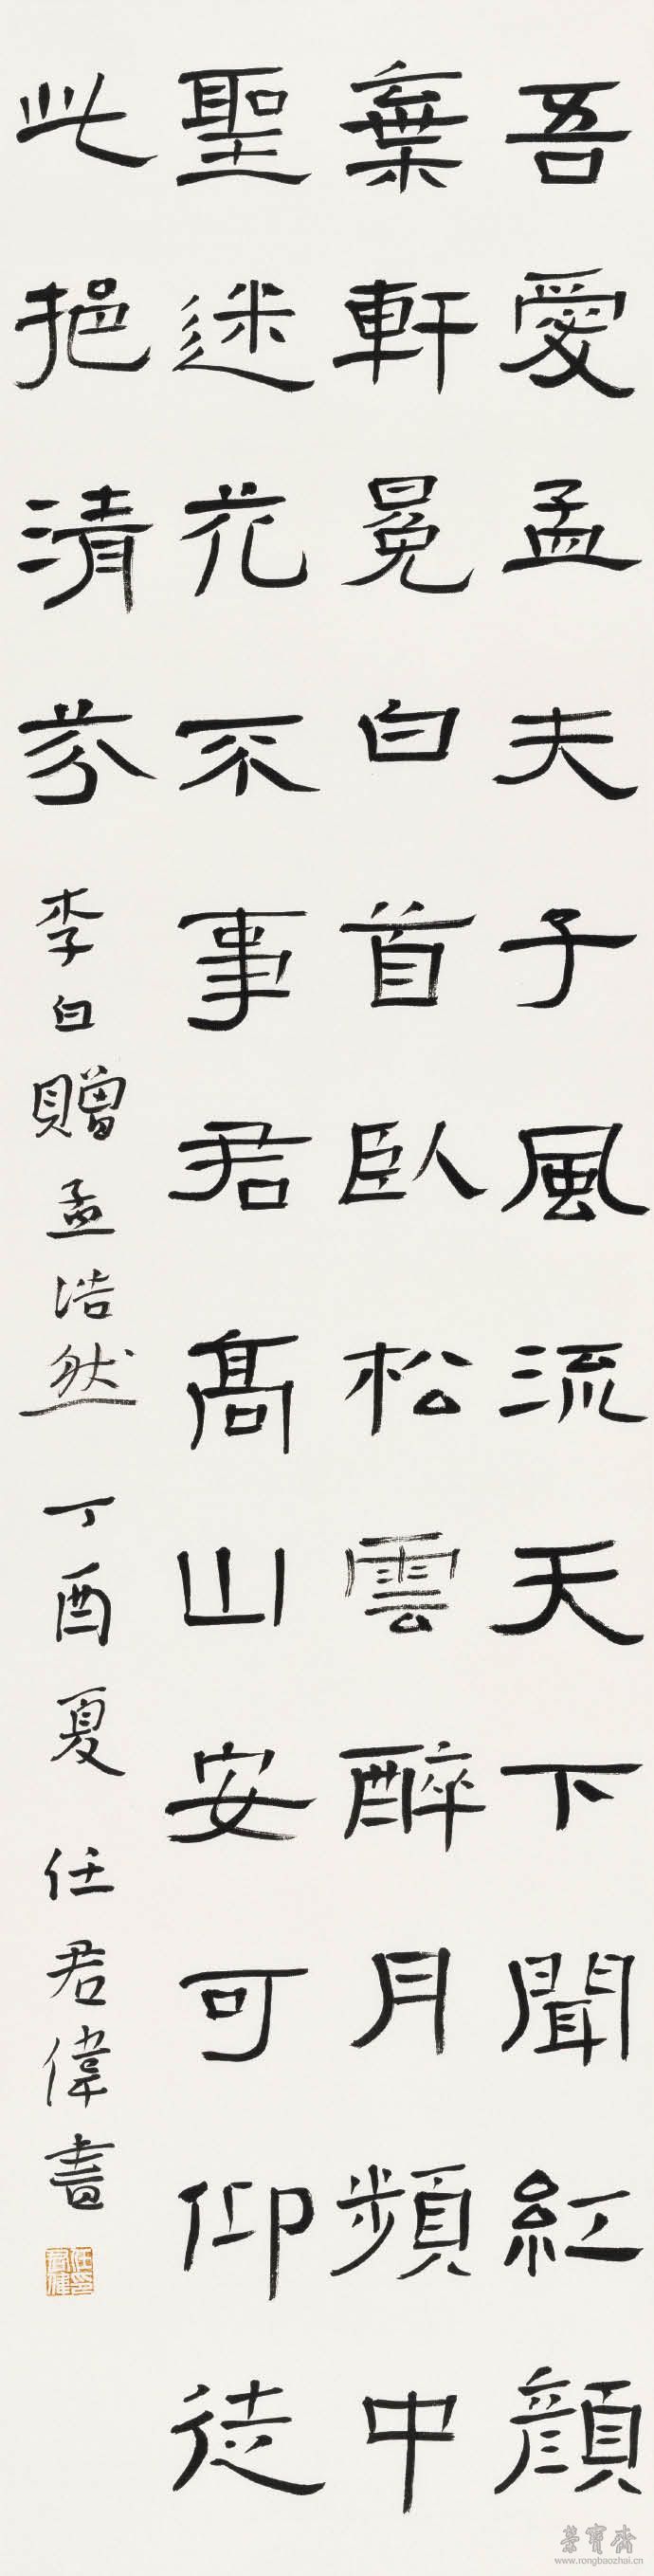 吾愛孟夫子風流天下聞紅顏
棄軒冕白首臥松雲醉月頻中
聖迷花不事君高山安可仰徒
此挹清芬
李白贈孟浩然 丁酉夏 任君偉書
榮寶齋
www.rongbaozhai.cn